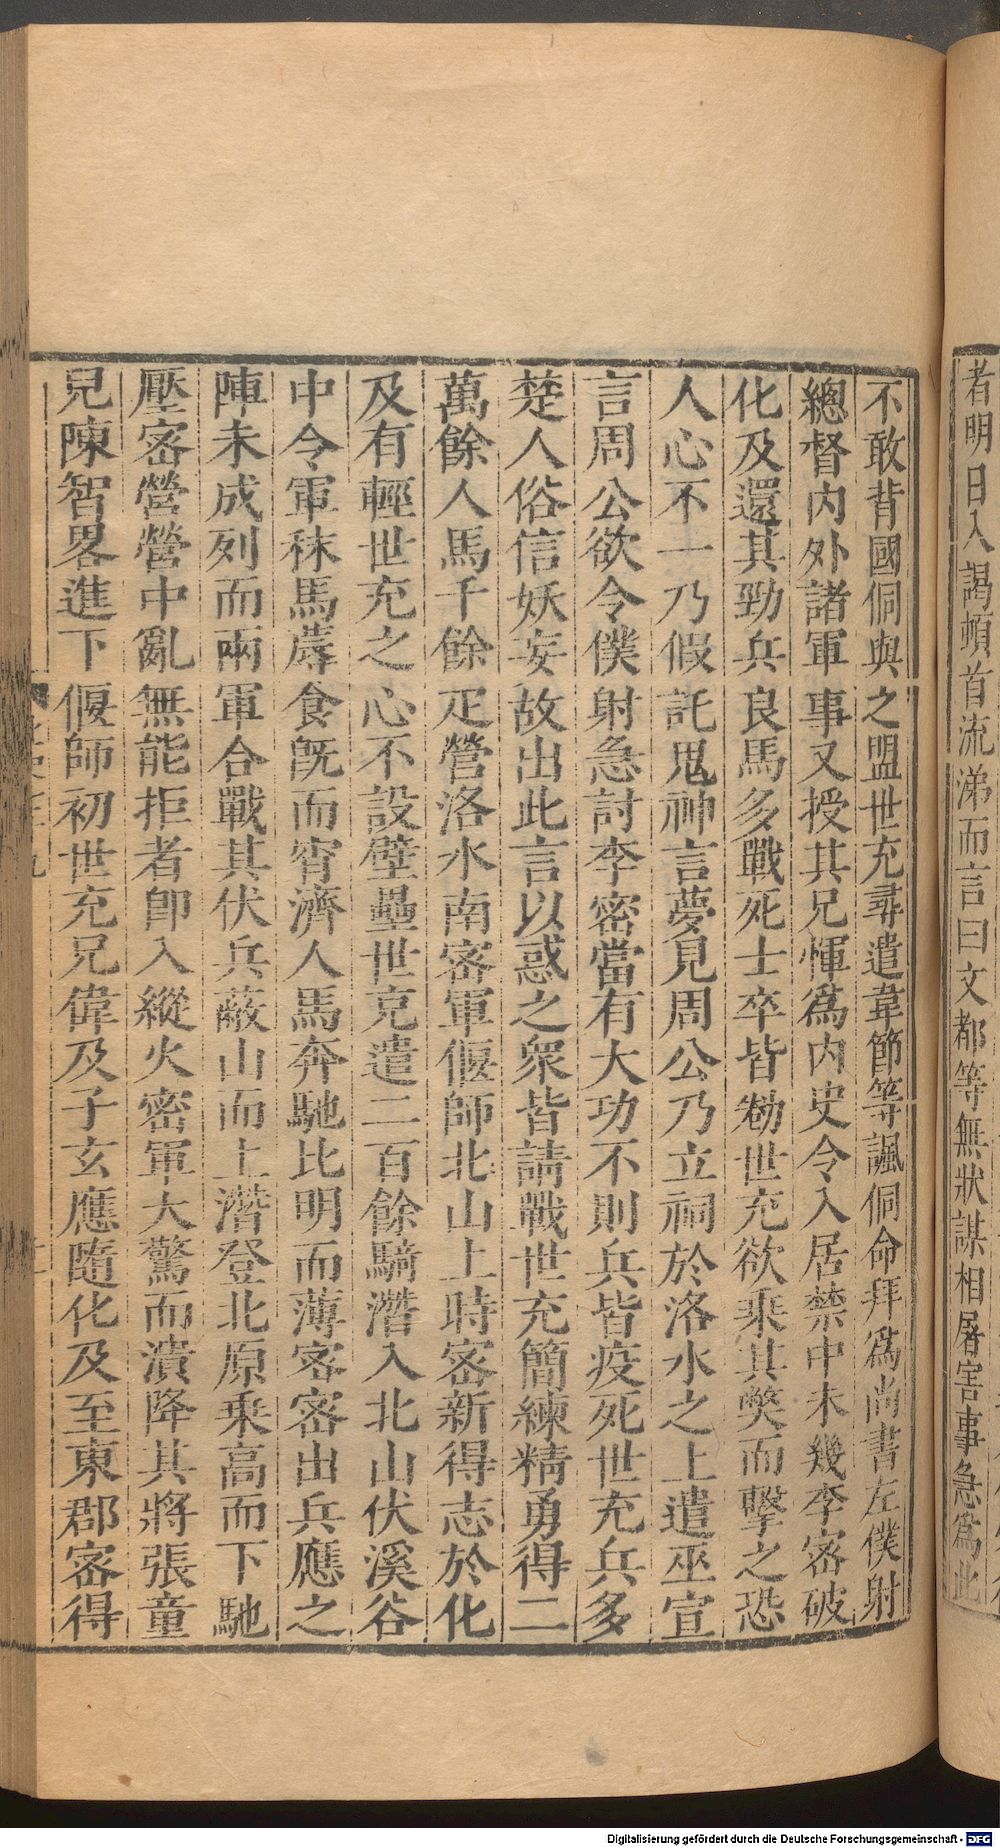 者明日入謁頓首流涕而言曰文都等無狀謀相屠害事急爲此
不敢背國侗與之盟世充尋遣韋節等諷侗命拜爲尚書左僕射
總督内外諸軍事又授其兄惲爲内史令入居禁中未幾李密破
化及還其勁兵良馬多戰死士卒皆勌世充欲乘其獘而擊之恐
人心不一乃假託鬼神言夢見周公乃立祠於洛水之上遣巫宣
言周公欲令僕射急討李密當有大功不則兵皆疫死世充兵多
楚人俗信妖妄故出此言以惑之衆皆請戰世充簡練精勇得二
萬餘人馬千餘疋營洛水南密軍偃師北山上時密新得志於化
及有輕世充之心不設壁壘世充遣二百餘騎潛入北山伏溪谷
中令軍秣馬蓐食旣而宵濟人馬奔馳比明而薄密密出兵應之
陣未成列而兩軍合戰其伏兵蔽山而上潛登北原乘高而下馳
壓密營營中亂無能拒者卽入縱火密軍大驚而潰降其將張童
兒陳智畧進下偃師初世充兄偉及子玄應隨化及至東郡密得
Digitalisierung gefördert durch die Deutsche Forschungsgemeinschaft - DFG